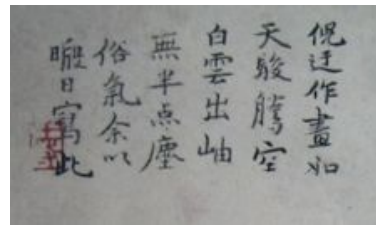 倪迂作畫如
天駿騰空
白雲出岫
無半点塵
俗氣余以
暇日寫此